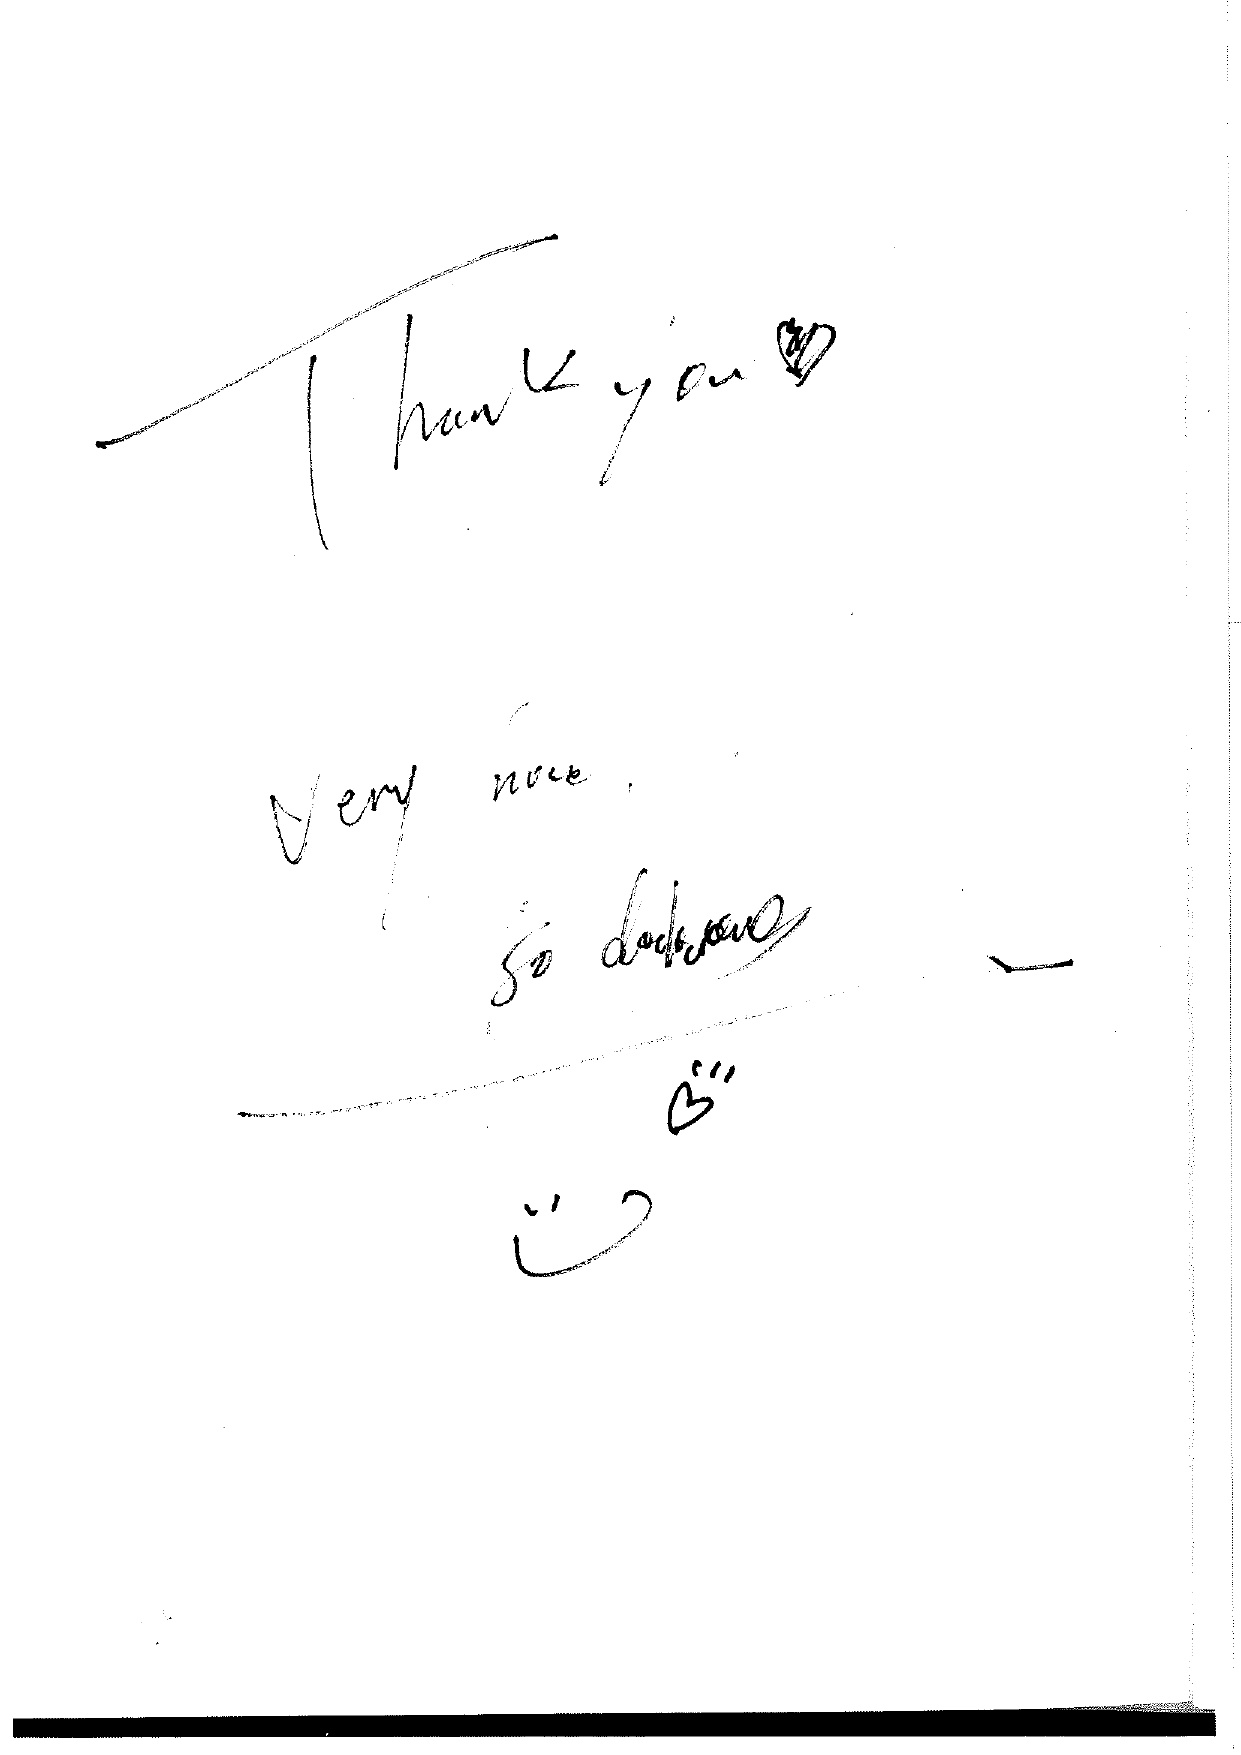 Thank you
very nice.
so